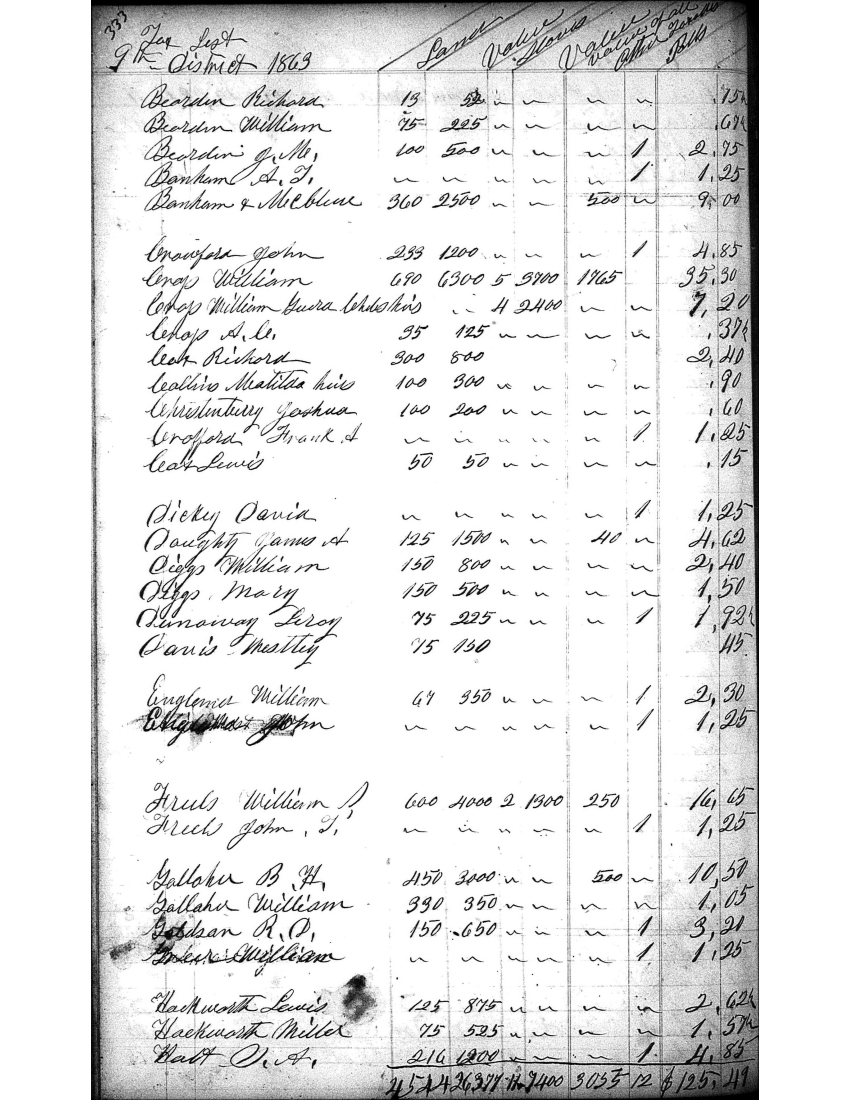 333
Tax List
9th District 1863
Land Value Slaves Value Value of all Other Taxables Polls
Beardin Richard 13 52 " " " " .75½
Beardin William 75 225 " " " " .67½
Beardin J. M. 100 500 " " " 1 2,75
Bonham A. T. " " " " " 1 1,25
Bonham & McClure 360 2500 " " 500 " 9,00
Crawford John 233 1200 " " " 1 4,85
Cross William 690 6300 5 3700 1765 35,30
Cross William heirs " 4 2400 " " 7,20
Cross A. C. 35 125 " " " " .37½
Cox Richard 300 800 2,40
Collins Matilda heirs 100 300 " " " " .90
Christenburry Joshua 100 200 " " " " .60
Crofford Frank A " " " " " 1 1,25
Cox Lewis 50 50 " " " " .15
Dickey David " " " " " 1 1,25
Doughty James A 125 1500 " " 40 " 4,62
Diggs William 150 800 " " " " 2,40
Diggs Mary 150 500 " " " " 1,50
Dunaway Leroy 75 225 " " " 1 1,92½
Davis Westley 75 150 45
William 67 350 " " " 1 2,30
John " " " " " 1 1,25
Friels William S 600 4000 2 1300 250 16,65
Friels John, T. " " " " " 1 1,25
Gallaher B H. 450 3000 " " 500 " 10,50
Gallaher William 330 350 " " " " 1,05
R. D. 150 650 " " " 1 3,20
William " " " " " 1 1,25
Hackworth Lewis 125 875 " " " " 2,62½
Hackworth Miller 75 525 " " " " 1,57½
Holt D. A. 216 1200 " " " 1 4,85
4544 26377 11 7400 3055 12 $125,49